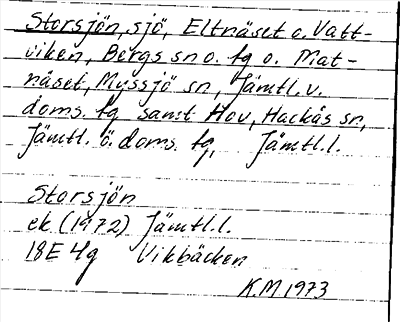 Storsjön, sjö, Eltnäset o. Vatt-
viken, Bergs sn o. tg o. Mat-
näset, Myssjö sn, Jämtl. v.
doms. tg samt Hov, Hackås sn,
Jämtl. ö. doms. tg, Jämtl. l.
Storsjön
ek (1972) Jämtl. l.
18E 4g Vikbäcken
K.M 1973